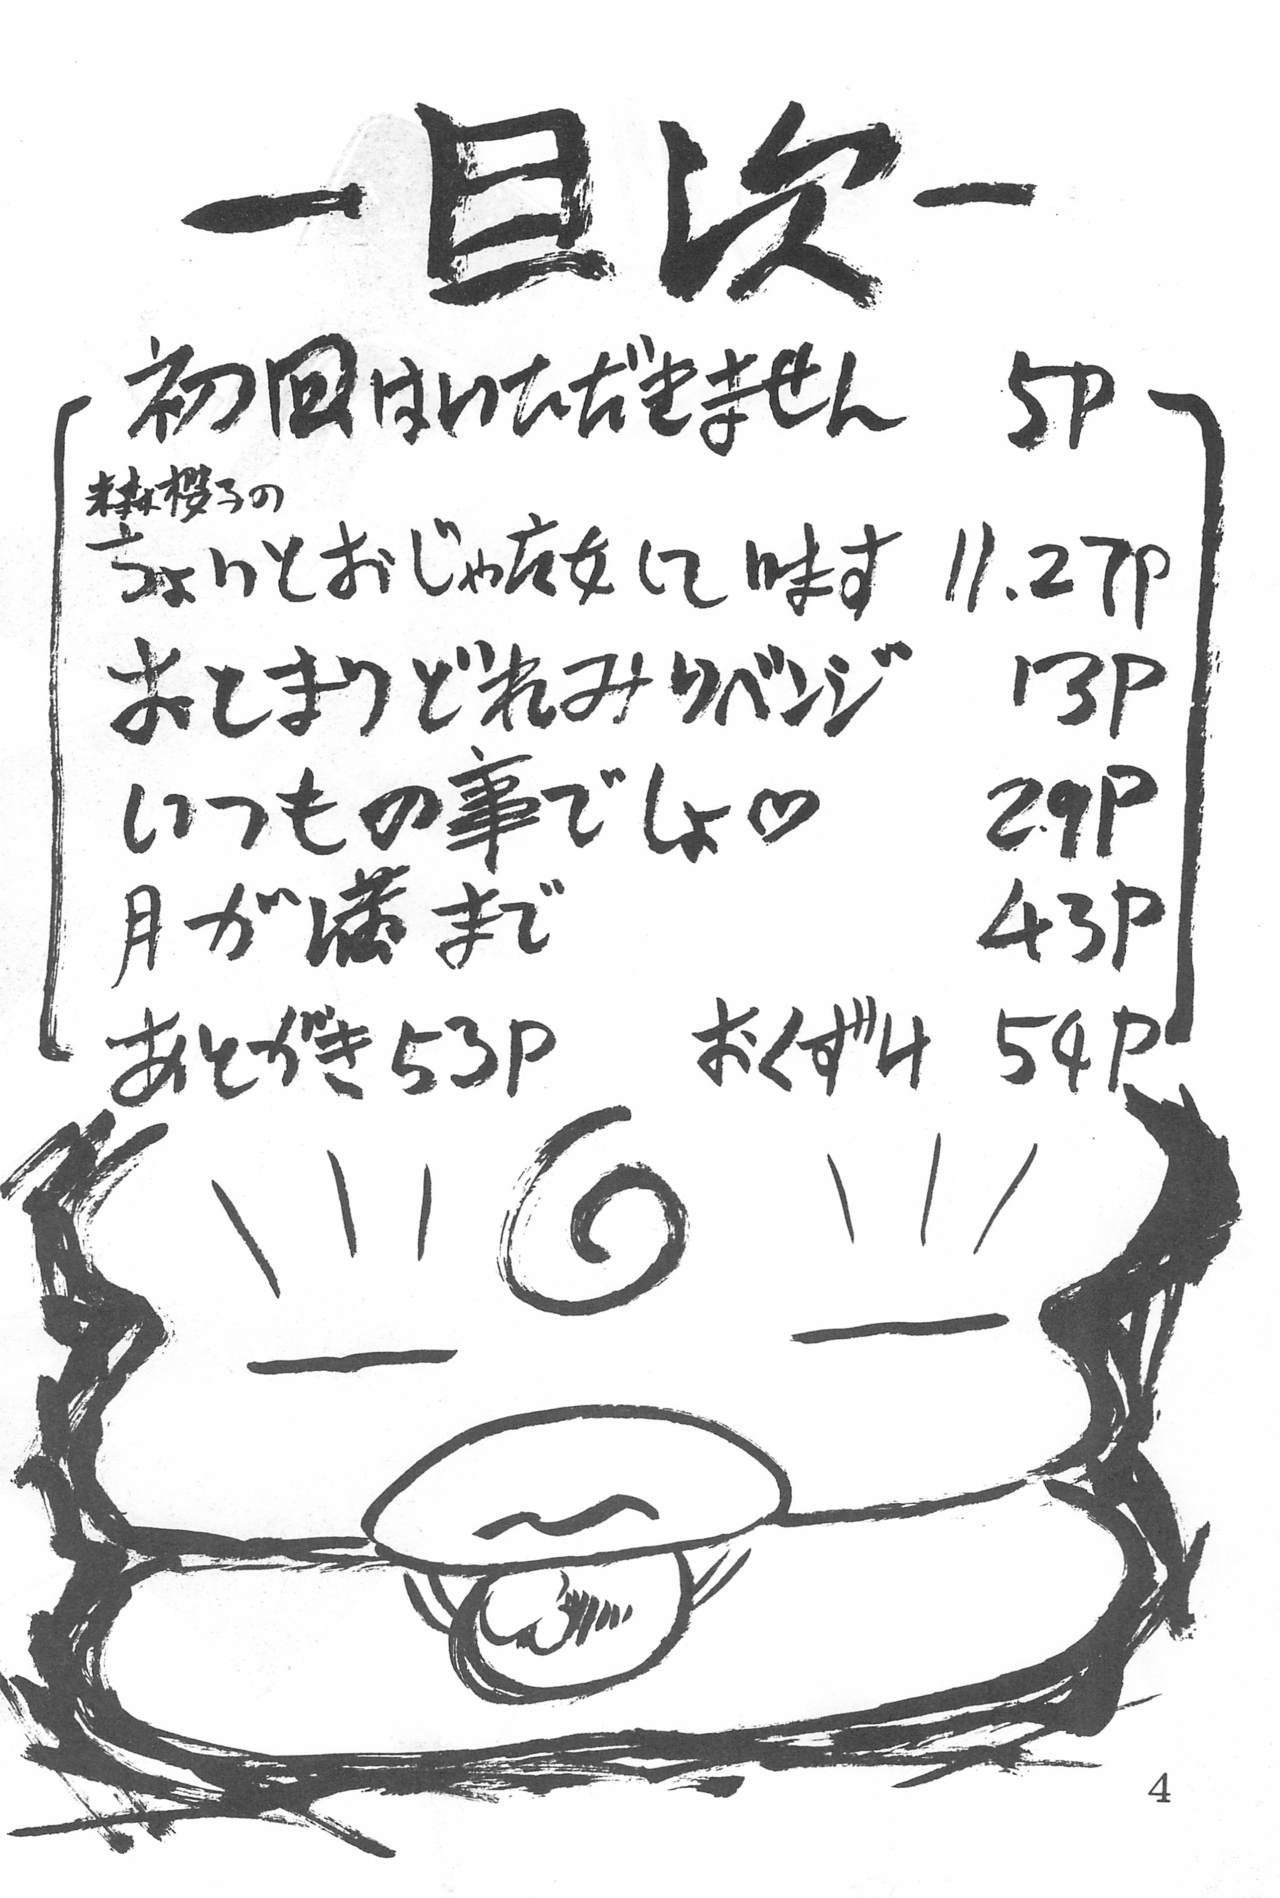 ー目次ー
初回はいただきません 5P
桜子の
ちょいとおじゃ広女しています 11.27P
おとまりどれみリベンジ 13P
いつもの事でしょ♡ 29P
月が満まで 43P
あとがき 53P おくずけ 54P
4